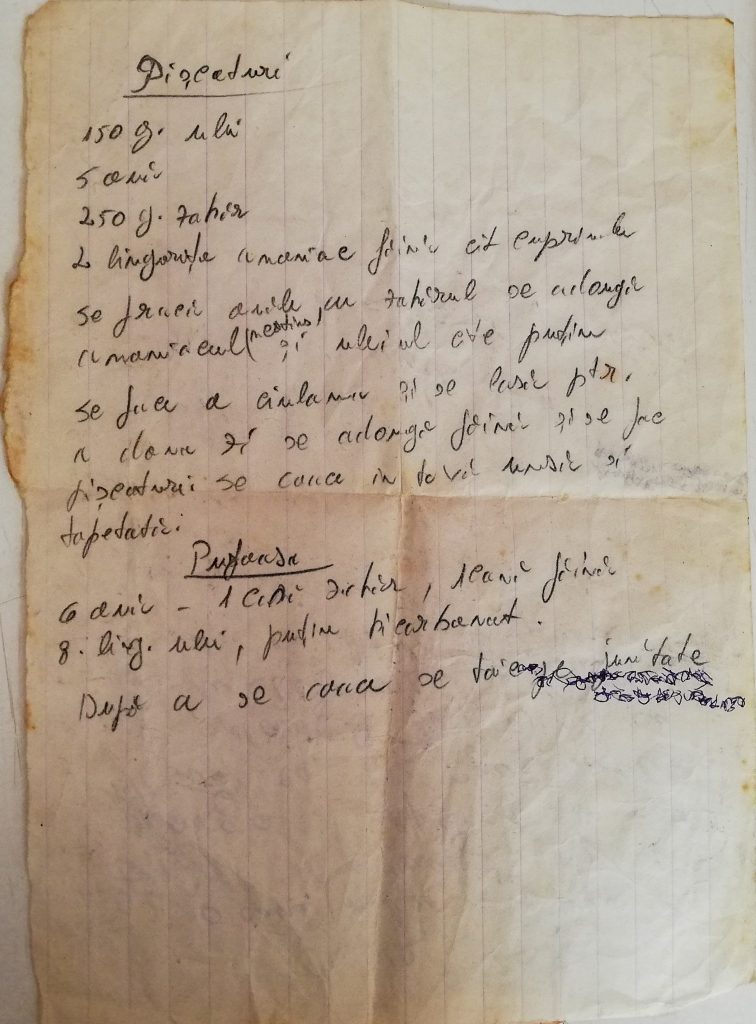 Pișcaturi
150 g. ulei
5 ouă
250 g. zahăr
2 lingurițe amoniac făină cît cuprinde
se freacă ouăle cu zahărul se adaugă
amoniacul (nestins, și uleiul cîte puțin
se face o ciulama și se lasă ptr.
a doua zi se adaugă făină și se fac
pișcaturi se coace in tavă unsă și
tapetată.
Pufoasa
6 ouă - 1 cană zahăr, 1 cană făină
8. ling. ulei, puțin bicarbonat.
După a se coace se taie pe jumitate